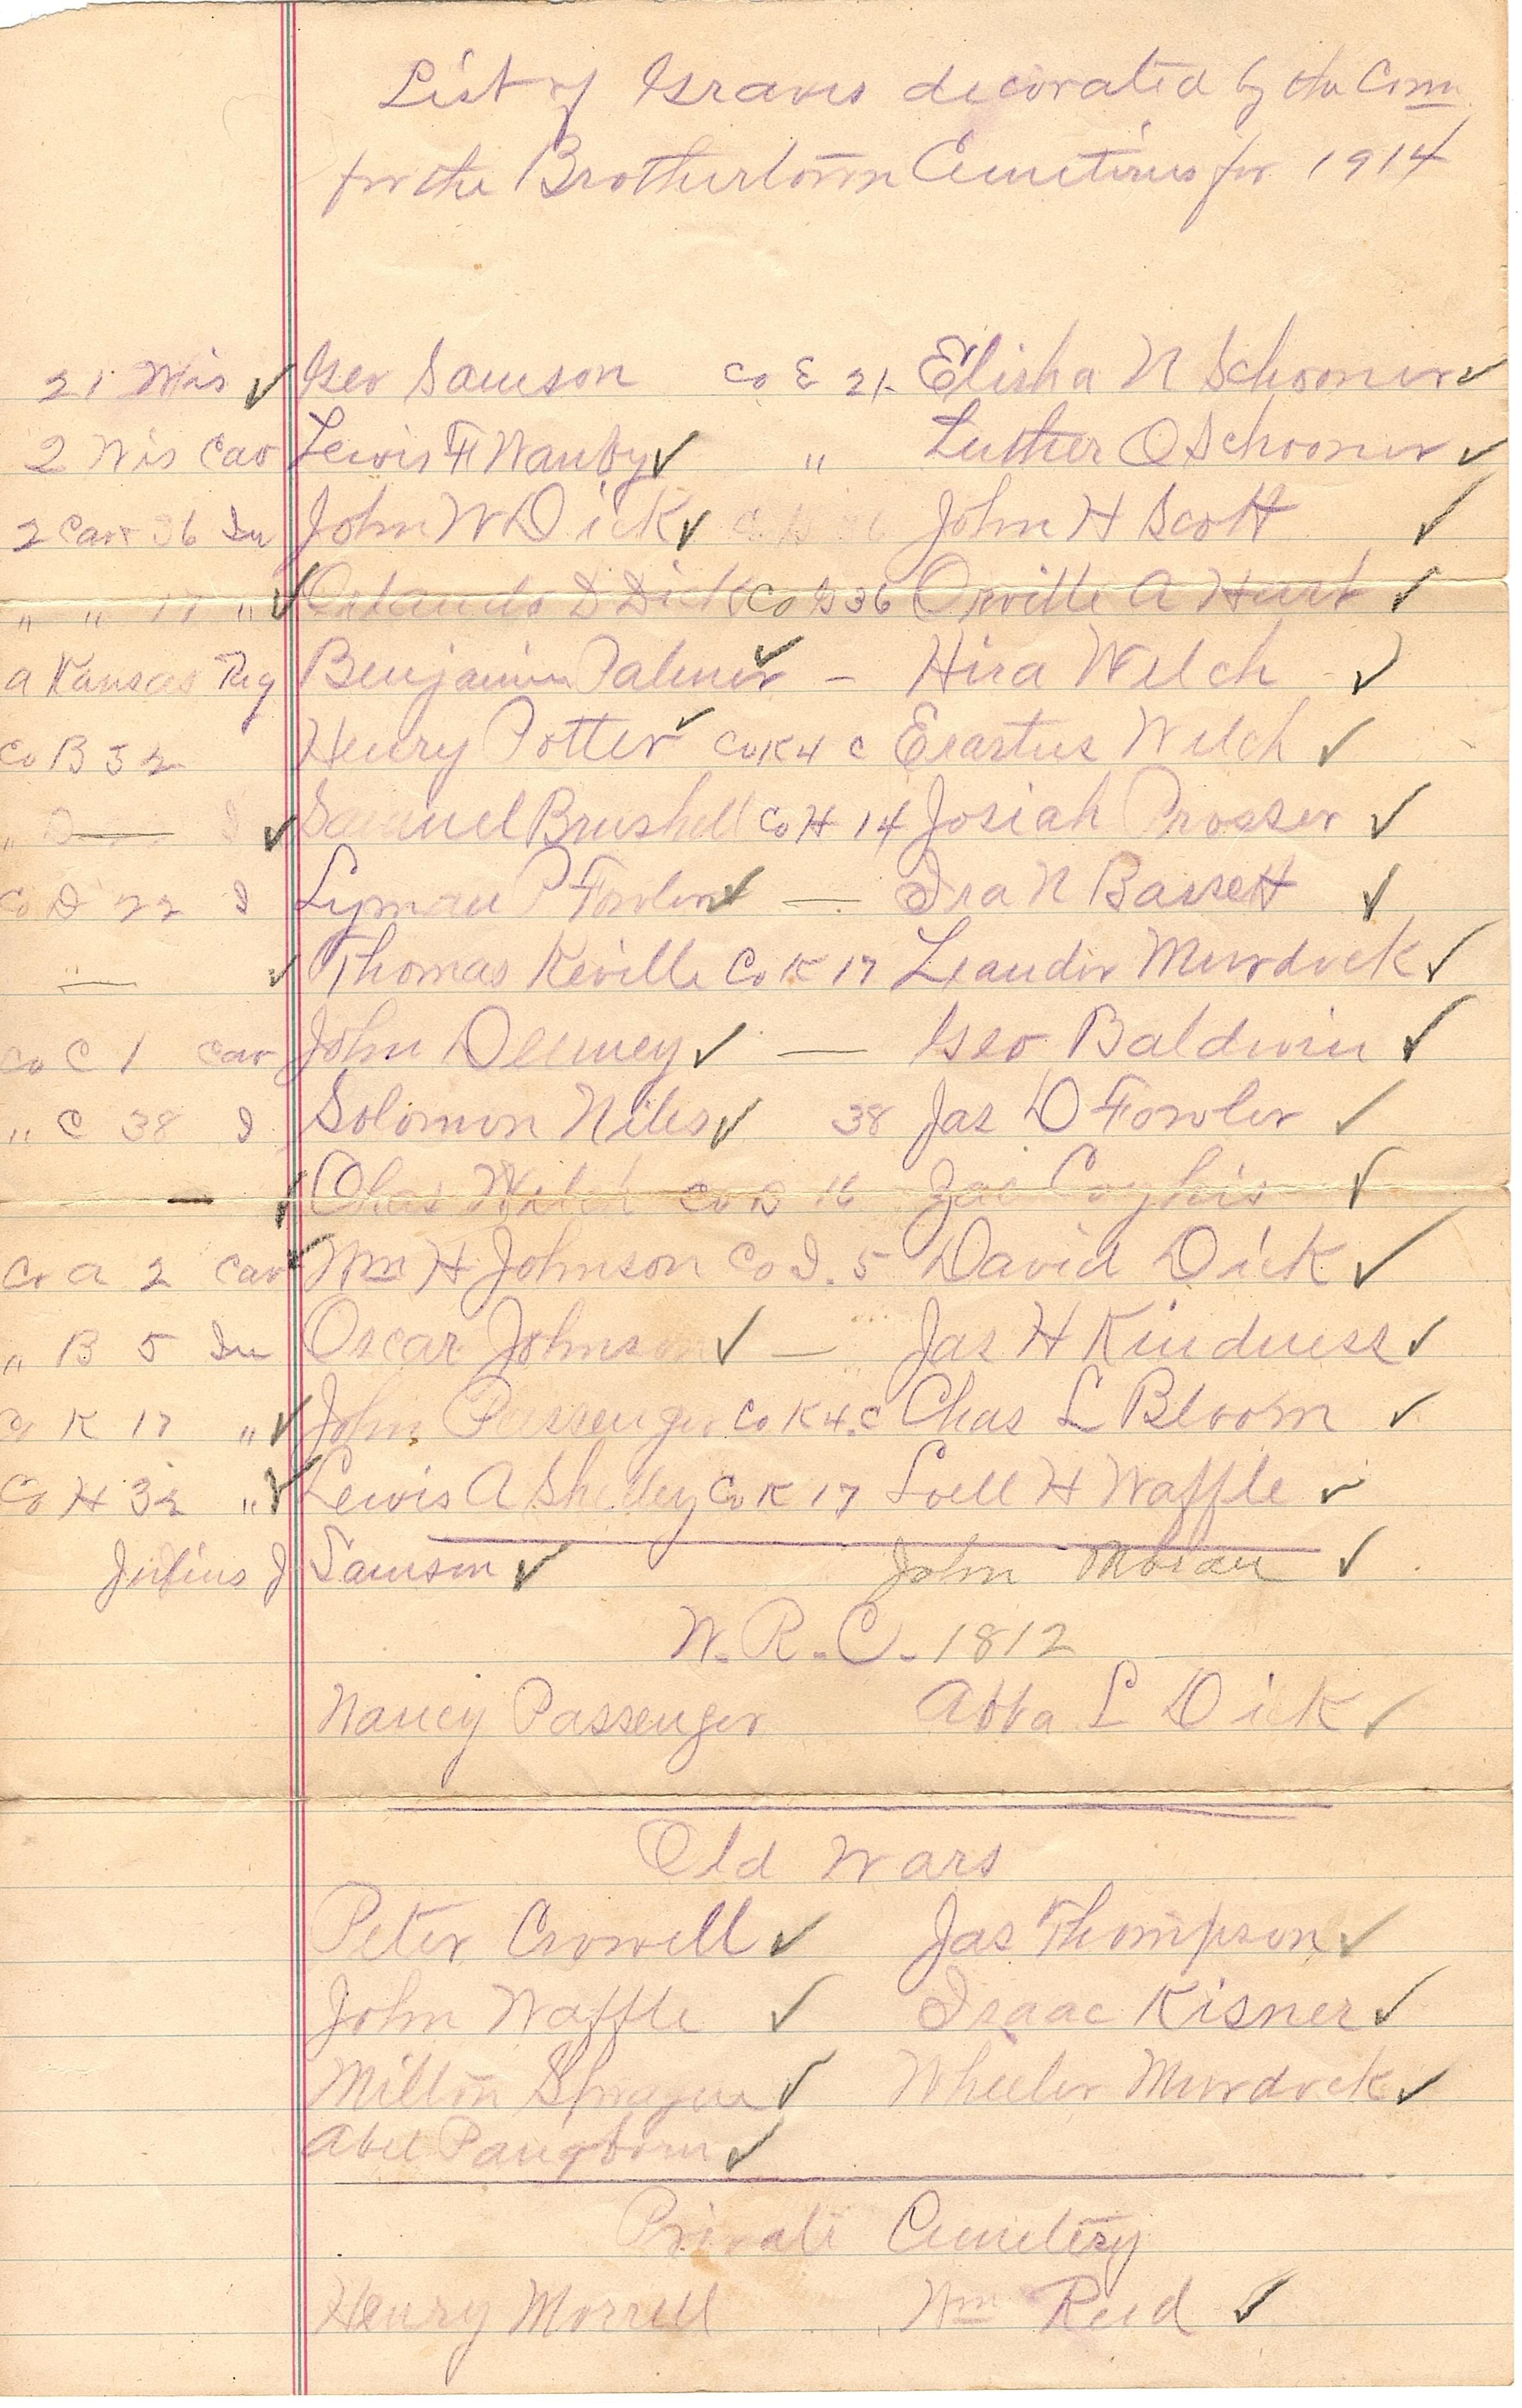 List of Graves decorated by the Com
for the Brothertown Cemeteries for 1914
21 Wis ✓ Geo Samson Co E 21 Elisha N Schooner ✓
2 Wis Cav Lewis F Wauby ✓ " Luther Q Schooner ✓
2 Cav 36 In John W Dick ✓ John H Scott ✓
" " 17 " ✓ Orlando D Dick Co G 36 Orville A Hart ✓
a Kansas Reg Benjamin Palmer ✓ — Hira Welch ✓
Co B 32 Henry Potter ✓ Co K 4 C Erastus Welch ✓
" ✓ Samuel Brushell Co H 14 Josiah Prosser ✓
Co D 22 I Lyman P Fowler ✓ — Ira N Bassett ✓
" ✓ Thomas Keville Co K 17 Leander Murdock ✓
Co C 1 Cav John Denney ✓ — Geo Baldwin ✓
" C 38 I Solomon Niles ✓ 38 Jas D Fowler ✓
— ✓ Chas Welch Co D 16 Jac Coyhis ✓
Co A 2 Cav ✓ Wm H Johnson Co I. 5 David Dick ✓
" B 5 In Oscar Johnson ✓ — Jas H Kindness ✓
Co K 17 " ✓ John Passenger Co K 4 C Chas L Bloom ✓
Co H 32 " ✓ Lewis A Shelley Co K 17 Loell H Waffle ✓
Julius J Samson ✓ John Moran ✓
W. R. C. 1812
Nancy Passenger Abba L Dick ✓
Old Wars
Peter Crowell ✓ Jas Thompson ✓
John Waffle ✓ Isaac Kisner ✓
Milton Sprague ✓ Wheeler Murdock ✓
Abel Pangborn ✓
Private Cemetery
Henry Morrell Wm Reed ✓